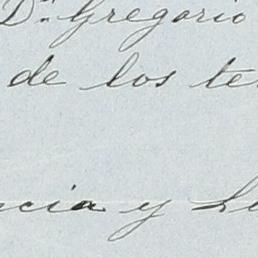 Dn. Gregorio
de los te
ncia y Lu